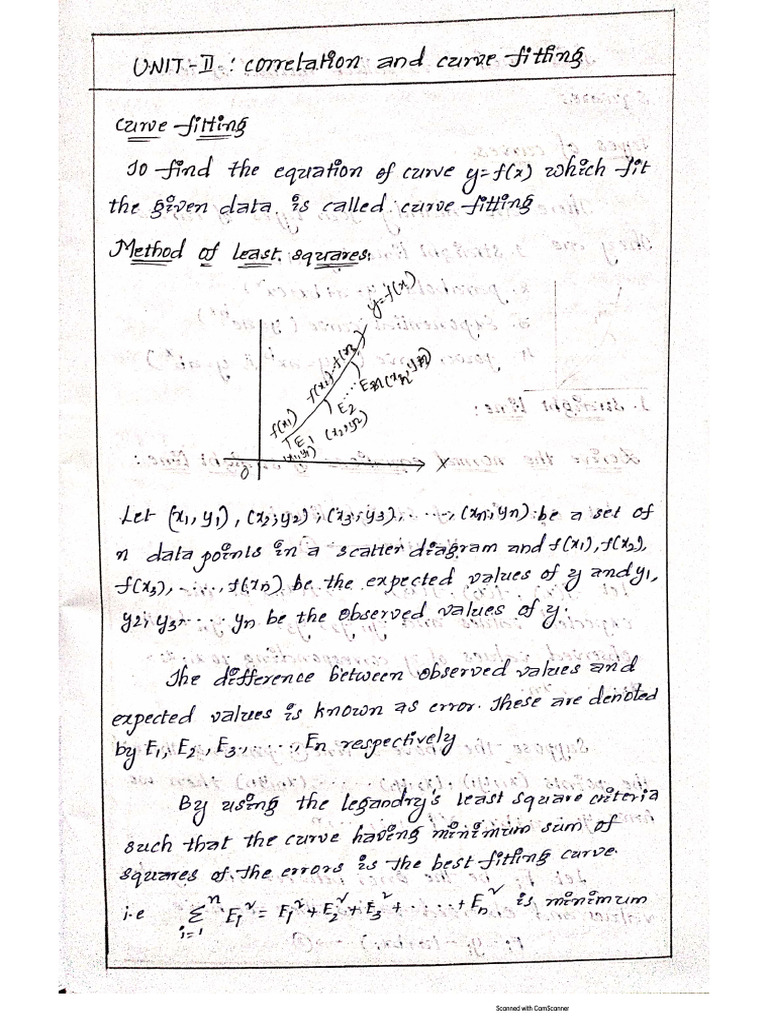 UNIT-II : correlation and curve fitting
curve fitting
To find the equation of curve y=f(x) which fit
the given data. is called curve fitting
Method of least squares:
y=f(x)
f(x1)
E1
(x1,y1)
E2
(x2,y2)
O
X
Let (x1, y1), (x2, y2), (x3, y3), ...., (xn, yn) be a set of
n data points in a scatter diagram and f(x1), f(x2),
f(x3), ....., f(xn) be the expected values of y and y1,
y2, y3, .... yn be the observed values of y.
The difference between observed values and
expected values is known as error. These are denoted
by E1, E2, E3, ...., En respectively
By using the legandry's least square criteria
such that the curve having minimum sum of
squares of the errors is the best fitting curve.
i.e ∑ⁿᵢ₌₁ Ei² = E1² + E2² + E3² + ..... + En² is minimum
Scanned with CamScanner